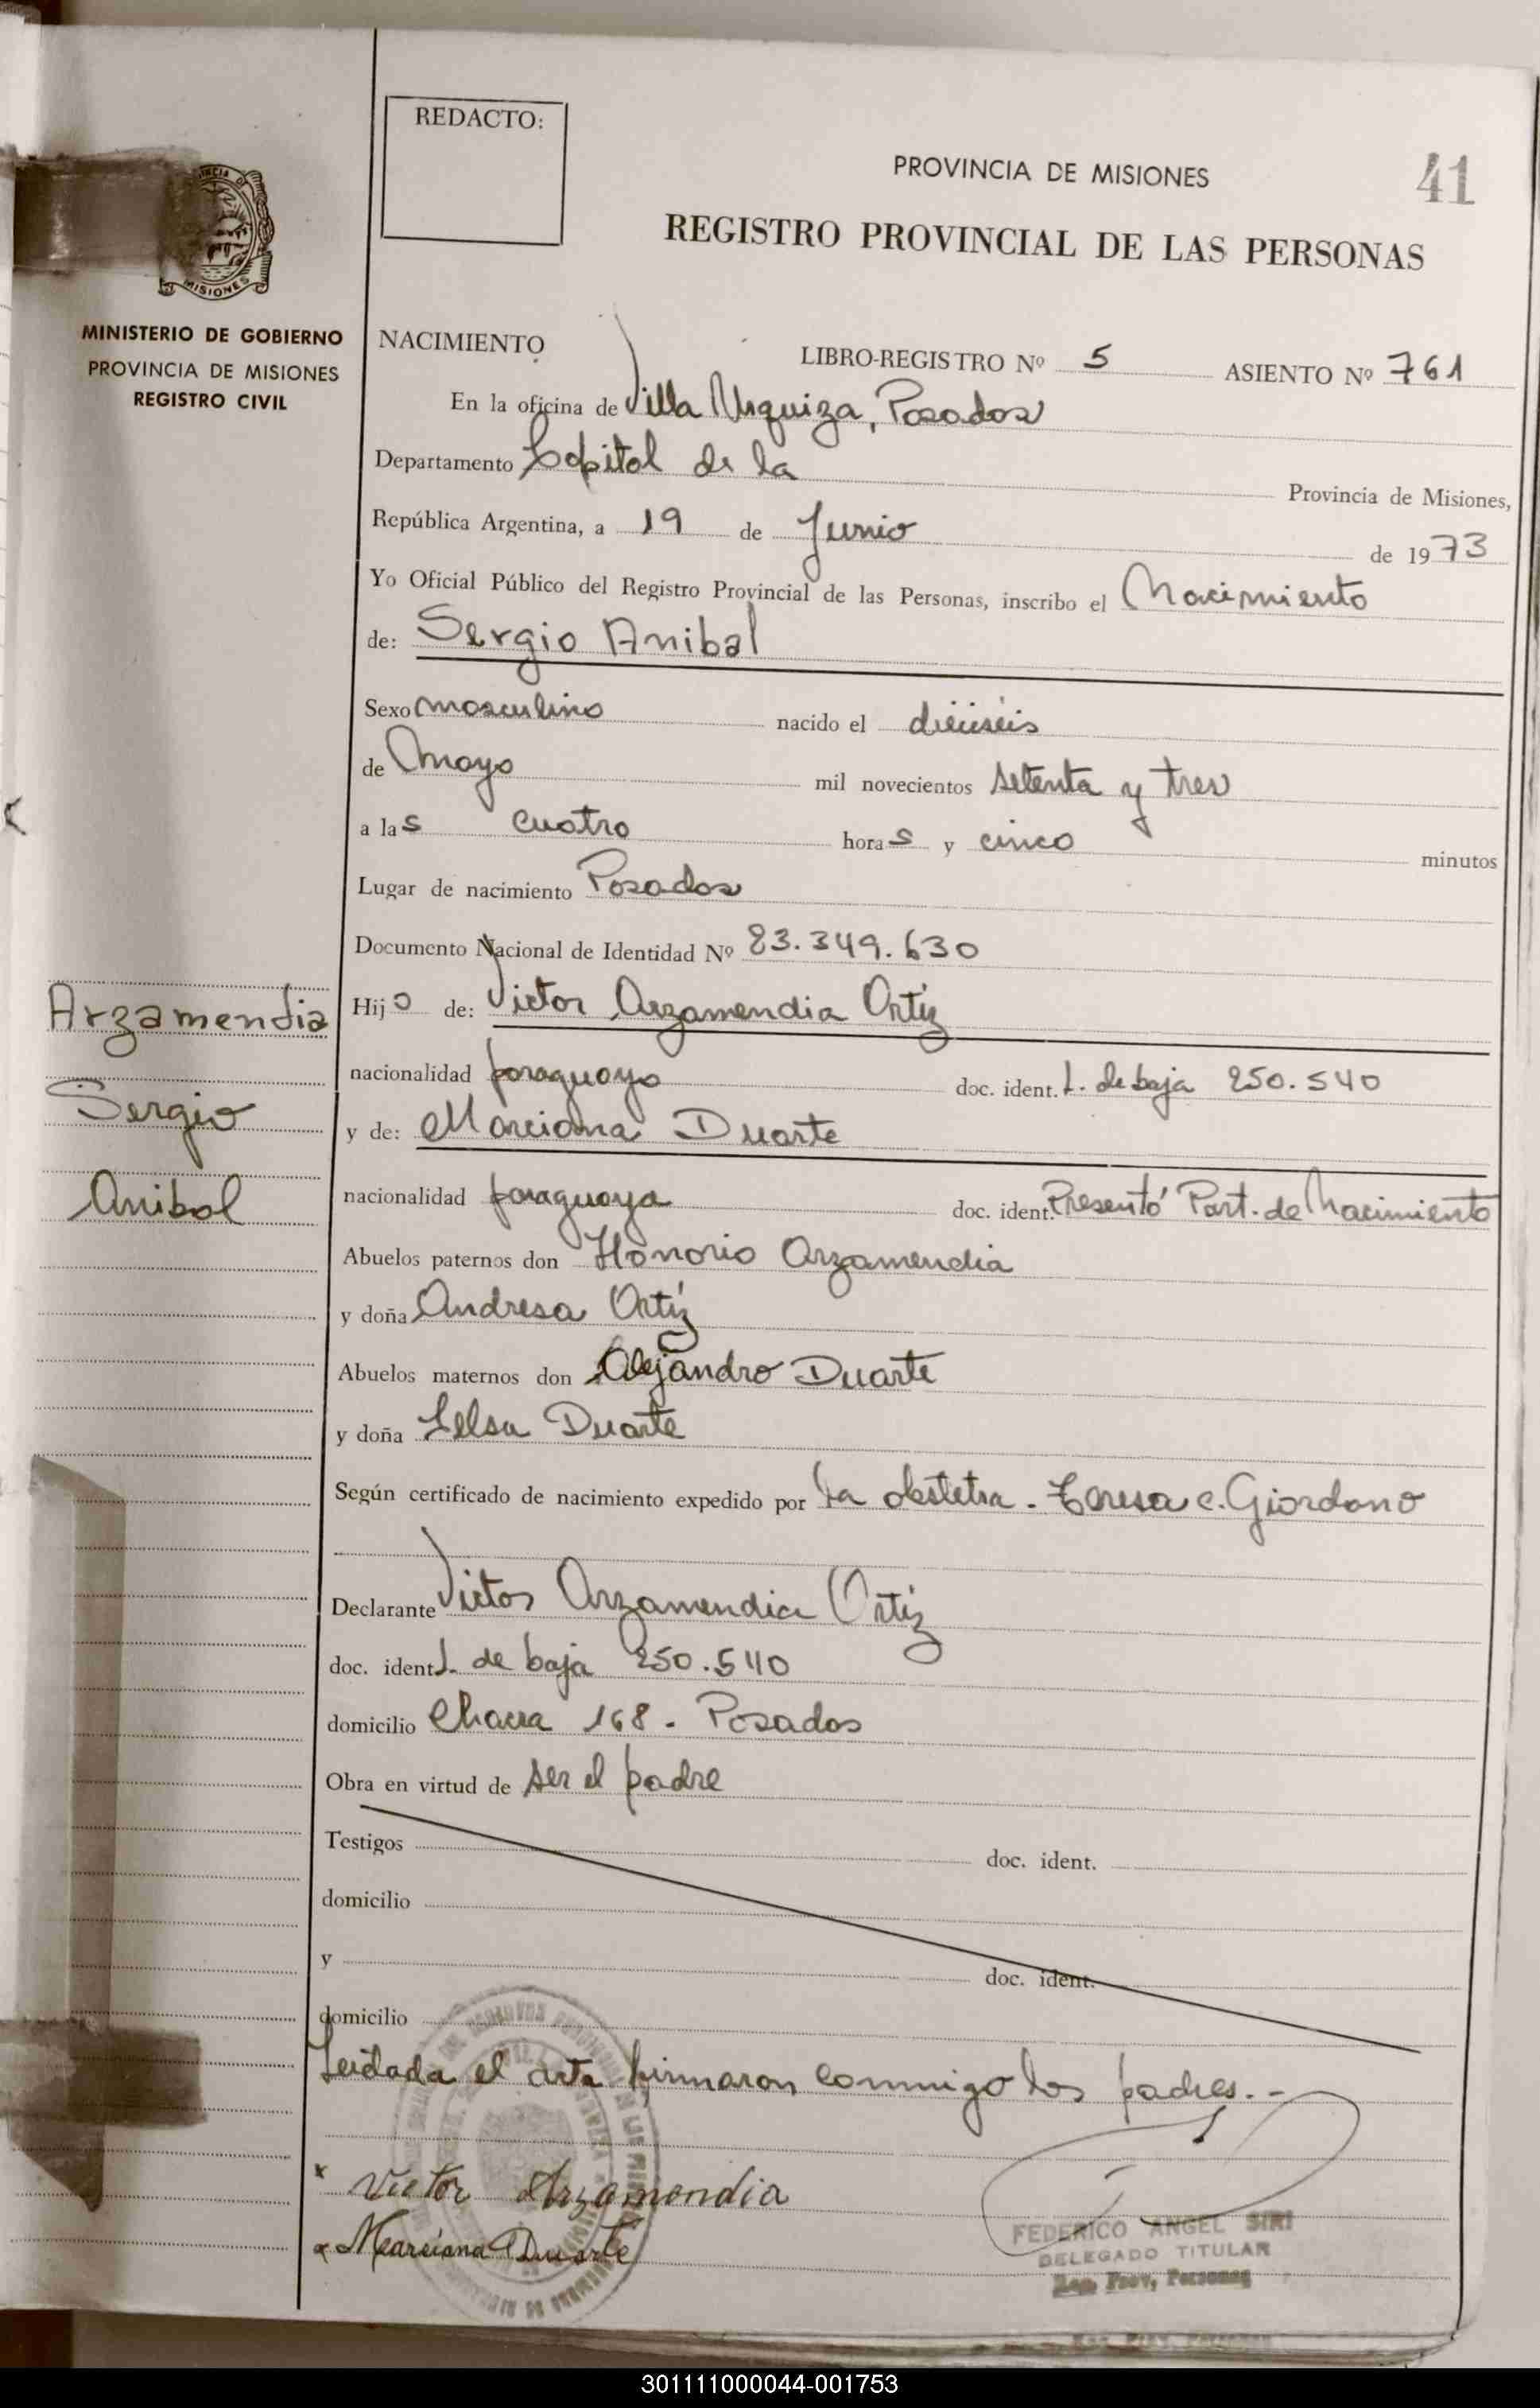 REDACTO:
PROVINCIA DE MISIONES
41
REGISTRO PROVINCIAL DE LAS PERSONAS
MISIONES
MINISTERIO DE GOBIERNO
PROVINCIA DE MISIONES
REGISTRO CIVIL
NACIMIENTO
LIBRO-REGISTRO Nº 5 ASIENTO Nº 761
En la oficina de Villa Urquiza, Posadas
Departamento Capital de la Provincia de Misiones,
República Argentina, a 19 de Junio de 1973
Yo Oficial Público del Registro Provincial de las Personas, inscribo el Nacimiento
de: Sergio Anibal
Sexo masculino nacido el dieciseis
de Mayo mil novecientos setenta y tres
a las cuatro horas y cinco minutos
Lugar de nacimiento Posadas
Documento Nacional de Identidad Nº 23.349.630
Arzamendia
Sergio
Anibal
Hijo de: Victor Arzamendia Ortíz
nacionalidad paraguayo doc. ident. L. de baja 250.540
y de: Marciana Duarte
nacionalidad paraguaya doc. ident. Presentó Part. de Nacimiento
Abuelos paternos don Honorio Arzamendia
y doña Andresa Ortíz
Abuelos maternos don Alejandro Duarte
y doña Duarte
Según certificado de nacimiento expedido por la obstetra - Teresa C. Giordano
Declarante Victor Arzamendia Ortíz
doc. ident. L. de baja 250.540
domicilio Chacra 168 - Posadas
Obra en virtud de ser el padre
Testigos doc. ident.
domicilio
y doc. ident.
domicilio
el acta firmaron conmigo los padres.-
x Victor Arzamendia
x Marciana Duarte
FEDERICO ANGEL SIRI
DELEGADO TITULAR
Reg. Prov, Personas
301111000044-001753